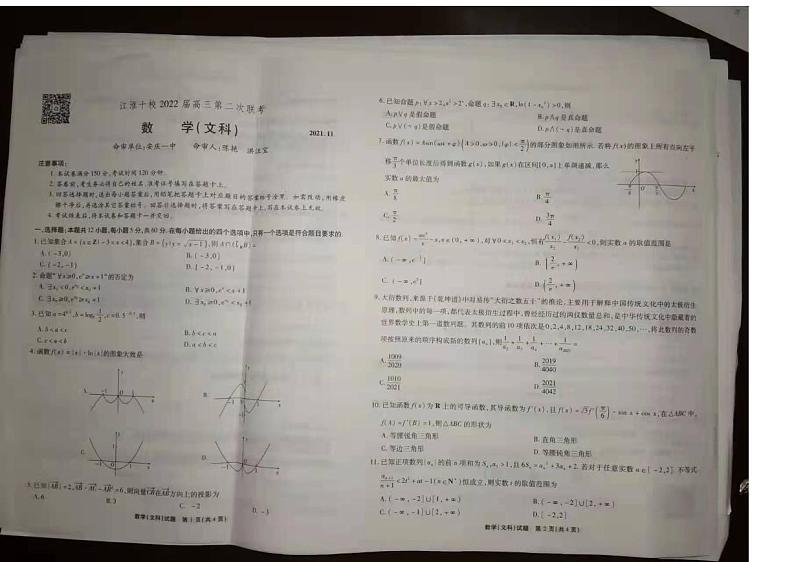 江淮十校2022届高三第二次联考
数 学(文科)
2021.11
命审单位:安庆一中 命审人:陈艳 洪汪宝
注意事项:
1.本试卷满分150分,考试时间120分钟.
2.答卷前,考生务必将自己的姓名、准考证号填写在答题卡上.
3.回答选择题时,选出每小题答案后,用铅笔把答题卡上对应题目的答案标号涂黑.如需改动,用橡皮
擦干净后,再选涂其它答案标号.回答非选择题时,将答案写在答题卡上,写在本试卷上无效.
4.考试结束后,将本试卷和答题卡一并交回.
一、选择题:本题共12小题,每小题5分,共60分.在每小题给出的四个选项中,只有一个选项是符合题目要求的.
1.已知集合A={x∈Z|-3<x<4},集合B={y|y=√x-1},则A∩(∁RB)=
A.(-3,0) B.(-3,0]
C.{-2,-1} D.{-2,-1,0}
2.命题"∀x≥0,eˣ≥x+1"的否定为
B.∀x≥0,eˣ<x+1
则
A.b<a<c B.b<c<a
C.c<a<b D.a<b<c
4.函数f(x)=|x|·ln|x|的图象大致是
A. B.
C. D.
则向量 在 方向上的投影为
A.6 B.3 C.-2 D.-3
数学(文科)试题 第1页(共4页)
6.已知命题p:∀x>2,x²>2ˣ,命题q:∃x₀∈R,ln(1-x₀²)>0,则
A.p∨q是假命题 B.p∧q是真命题
C.p∨(¬q)是假命题 D.p∧(¬q)是真命题
7.函数f(x)=Asin(ωx+φ)(A>0,ω>0,|φ|<π/2)的部分图象如图所示.若将f(x)的图象上所有点向左平
移 个单位长度后得到函数g(x),如果g(x)在区间[0,a]上单调递减,那么
实数a的最大值为
A.π/8 B.π/4
C.π/2 D.3π/4
则实数a的取值范围是
9.大衍数列,来源于《乾坤谱》中对易传"大衍之数五十"的推论,主要用于解释中国传统文化中的太极衍生
原理,数列中的每一项,都代表太极衍生过程中,曾经经历过的两仪数量总和,是中华传统文化中隐藏着的
世界数学史上第一道数列题.其数列的前10项依次是0,2,4,8,12,18,24,32,40,50,…,将此数列的奇数
项按照原来的顺序构成新数列{aₙ},则
A.1009/2020 B.2019/4040
C.1010/2021 D.2021/4042
10.已知函数f(x)为R上的可导函数,其导函数为f'(x),且f(x)=√3f'(π/6)·sin x+cos x,在△ABC中,
f(A)=f'(B)=1,则△ABC的形状为
A.等腰锐角三角形 B.直角三角形
C.等边三角形 D.等腰钝角三角形
11.已知正项数列{aₙ}的前n项和为Sₙ,a₁>1,且6Sₙ=aₙ²+3aₙ+2.若对于任意实数a∈[-2,2].不等式
aₙ₊₁/(n+1)<2t²+at-1(n∈N*)恒成立,则实数t的取值范围为
A.(-∞,-2]∪[1,+∞) B.(-∞,-2]∪[2,+∞)
C.(-∞,-1]∪[2,+∞) D.[-2,2]
数学(文科)试题 第2页(共4页)